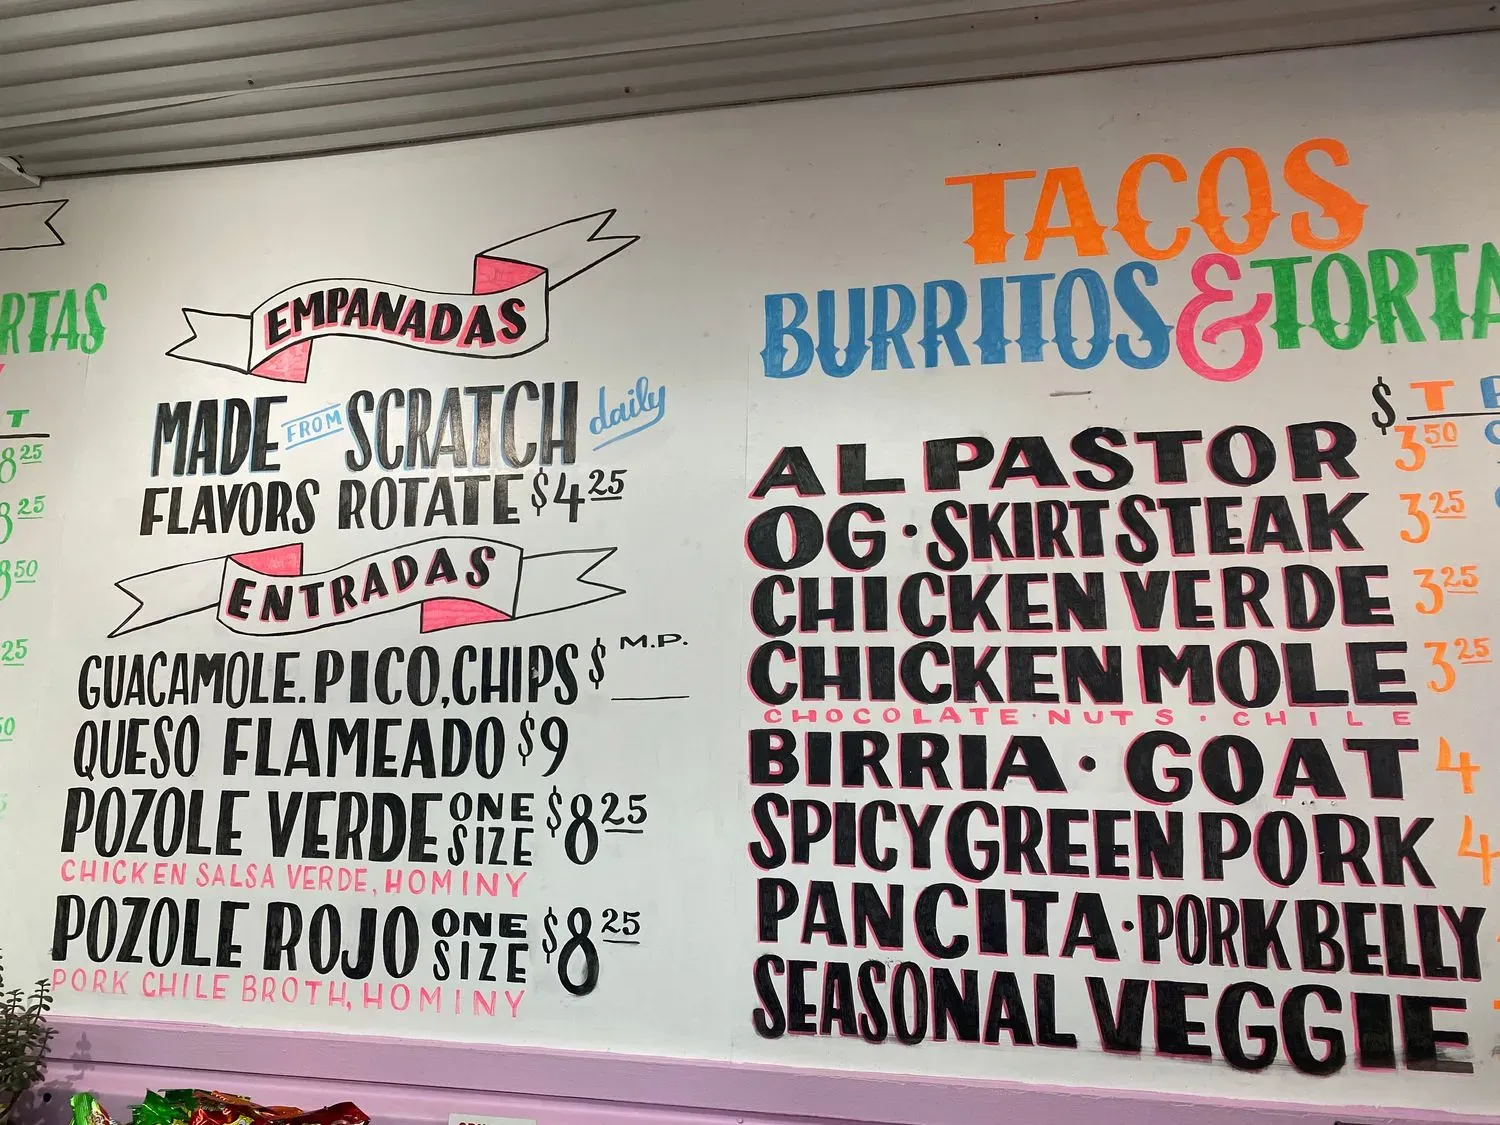 RTAS
T
8 25
8 25
8 50
25
50
EMPANADAS
MADE FROM SCRATCH daily
FLAVORS ROTATE $4 25
ENTRADAS
GUACAMOLE. PICO, CHIPS $ M.P.
QUESO FLAMEADO $9
POZOLE VERDE ONE SIZE $8 25
CHICKEN SALSA VERDE, HOMINY
POZOLE ROJO ONE SIZE $8 25
PORK CHILE BROTH, HOMINY
TACOS
BURRITOS & TORTA
$ T
AL PASTOR 3 50
OG · SKIRT STEAK 3 25
CHICKEN VERDE 3 25
CHICKEN MOLE 3 25
CHOCOLATE · NUTS · CHILE
BIRRIA · GOAT 4
SPICY GREEN PORK 4
PANCITA · PORK BELLY
SEASONAL VEGGIE